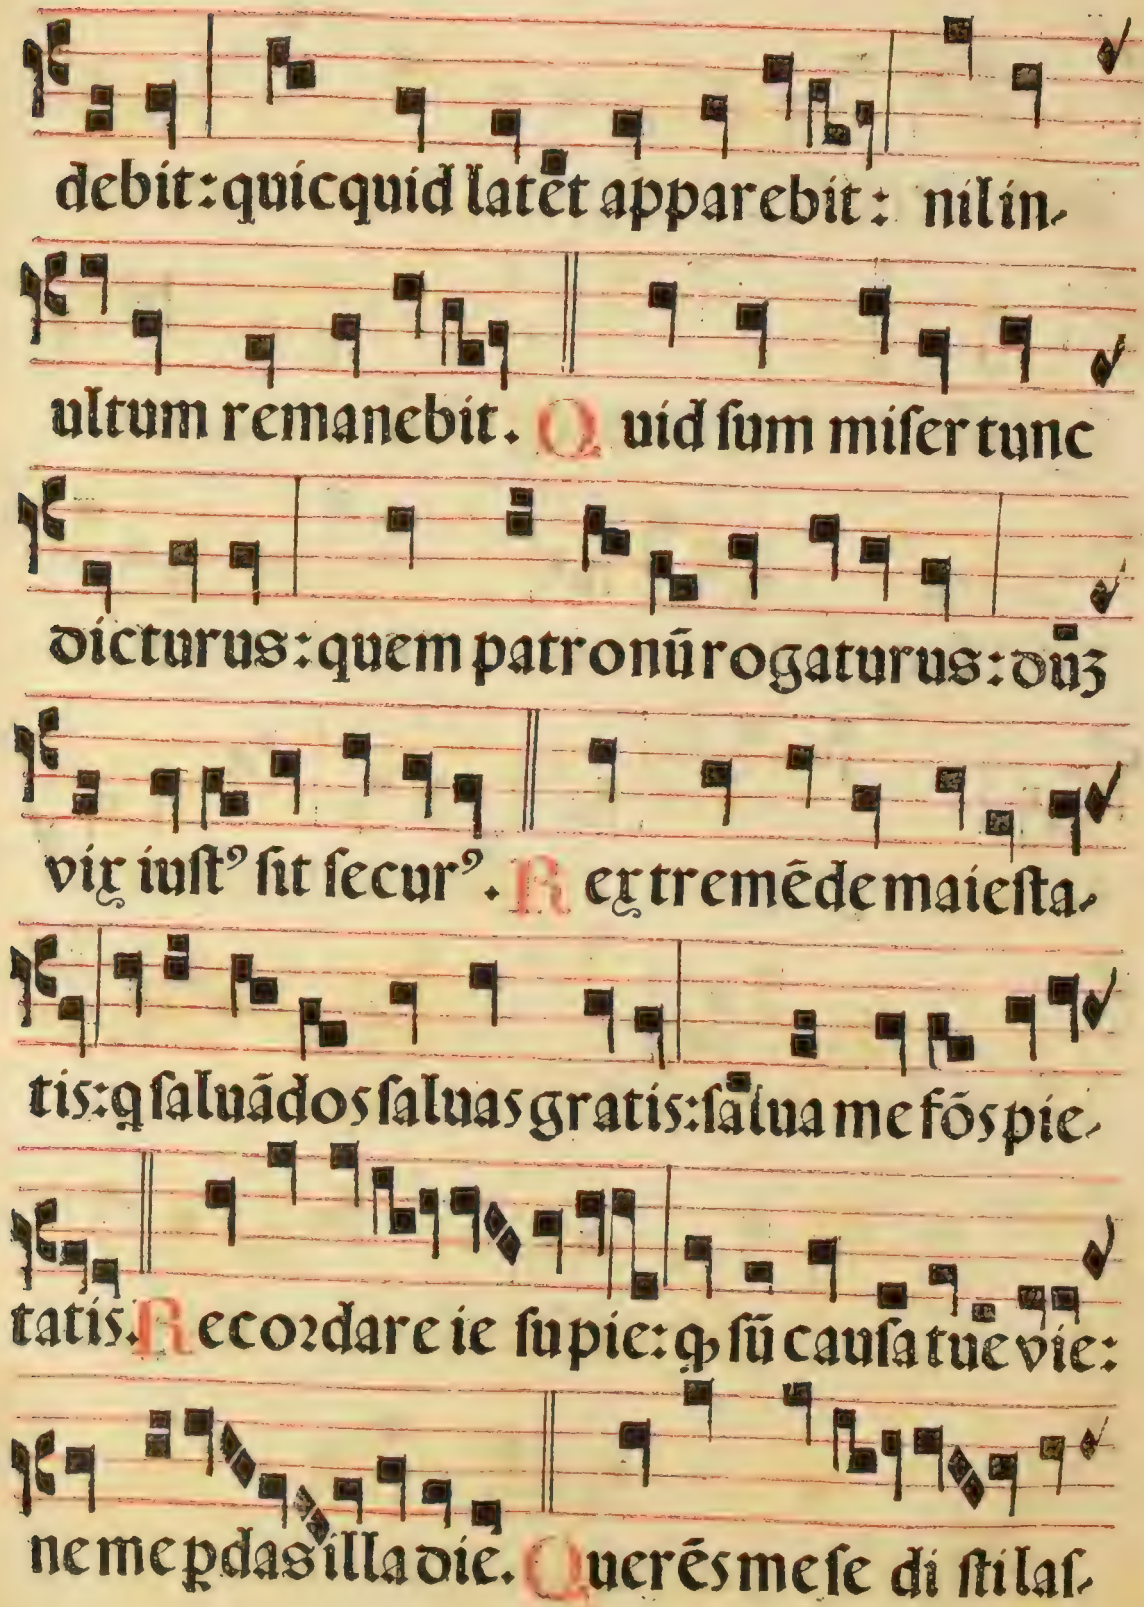 debit: quicquid latet apparebit: nil in-
ultum remanebit. Quid ſum miſer tunc
dicturus: quem patronū rogaturus: dūʒ
vix iuſtꝰ ſit ſecurꝰ. Rex tremēde maieſta-
tis: q ſaluādos ſaluas gratis: ſalua me fōs pie-
tatis. Recoꝛdare ie ſu pie: ꝙ ſū cauſa tue vie:
ne me ꝑdas illa die. Querēs me ſe di ſti laſ-